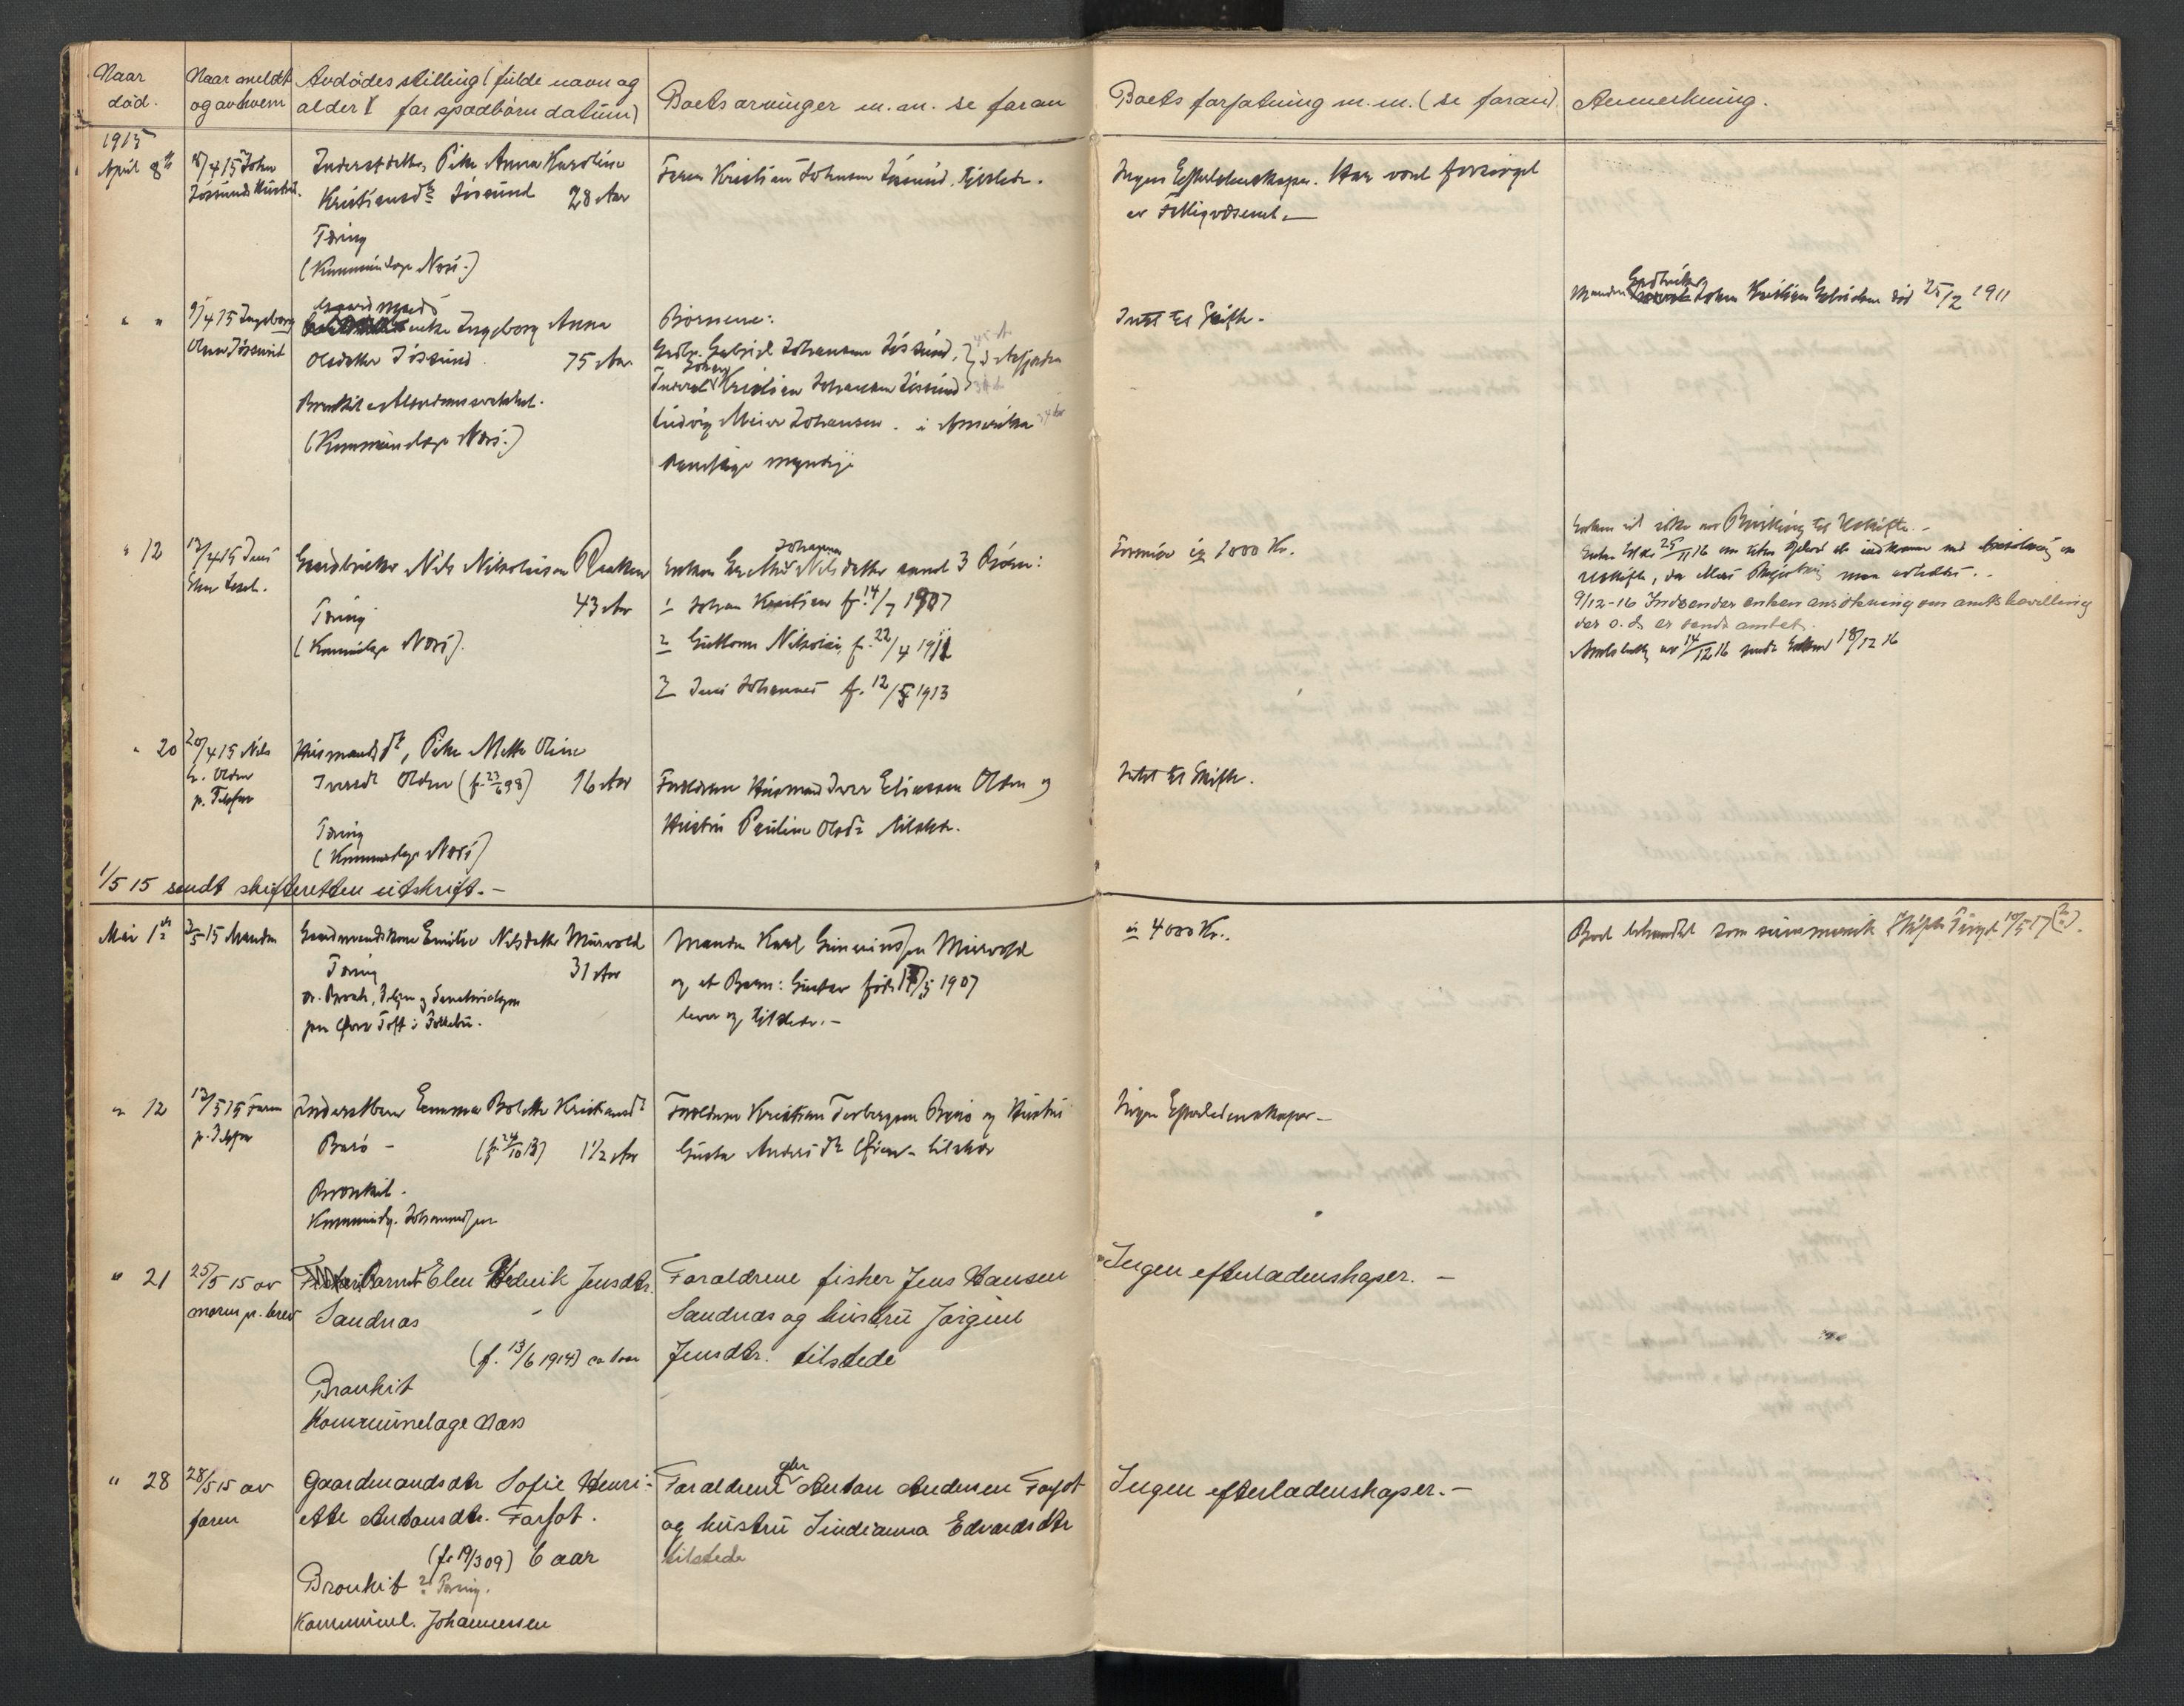 Naar
død.
Naar meldt
og av hvem
Avdödes stilling (fulde navn og
alder (for spædbørn datum)
Boets arvinger m.m. se foran
Boets forfatning m.m. (se foran)
Anmerkning.
1915
April 8de
8/4 15 John
Jössund
Inderstdatter, Pike Anna Karoline
Kristiansdtr Jössund 28 Aar
Tæring
(Kommunelæge Næss.)
Faren Kristian Johnsen Jössund, tilstede.
Ingen Efterladenskaper. Har været forsørget
av Fattigvæsenet. —
" "
9/4 15 Ingeborg
Olsen Jössund
Gaardmands
enke Ingeborg Anna
Olsdatter Jössund 75 Aar
Bronkit Alderdomssvakhet.
(Kommunelæge Næss.)
Börnene:
Gabriel Johansen Jössund,
Johan
Kristian Johansen Jössund
Ludvig Meier Johansen i Amerika
samtlige myndige
Intet til Skifte.
Gaardbruker
Manden Johan Kristian död 25/2 1911
" 12
12/4 15 Jens
Gaardbruker Nils Nikolaisen
43 Aar
Tæring
(Kommunelæge Næss).
Johanna
Enken Nilsdatter samt 3 Börn:
1 Johan Kristian f. 14/7 1907
2 Guttorm Nikolai, f. 22/4 1911
3 Jens Johannes f. 12/5 1913
Formue ig 1000 Kr.
Enken vil söke om Bevilling til Uskifte. —
25/11 16
uskifte,
9/12-16 Indsender enken ansökning om amtsbevilling
der s. d. er sendt amtet.
14/12 16 sendt Enken 18/12 16
" 20
20/4 15 Nils
Olden
p. Telefon
Husmandsdtr, Pike Mette Oline
Iversdtr Olden (f. 23/6 98) 16 Aar
Tæring
(Kommunelæge Næss)
Forældrene Husmand Iver Eliassen Olden og
Hustru Pauline Olsdtr tilstede.
Intet til Skifte.
1/5 15 sendt skifteretten utskrift. —
Mai 1ste
3/5 15 Manden
Gaardmandskone Emilie Nilsdatter Murvold
Tæring 31 Aar
Manden Karl Murvold
og et Barn: Gustav född /5 1907
lever og tilstede. —
ig 4000 Kr..
Boet behandlet som summarisk Skifte 10/5 17
" 12
12/5 15 Faren
p. Telefon
Inderstbarn Emma Bolette Kristiansdtr
Barö — (f. 24/10 13) 1½ Aar
Bronkit.
Kommunelg. Johannessen
Forældrene Kristian Torbergsen Barö og Hustru
Gusta Andersdtr tilstede
Ingen Efterladenskaper —
" 21
25/5 15 av
moren pr. brev
Fiskerbarnet Elen Hedevik Jensdtr.
Sandnæs —
(f. 13/6 1914) ca 1 aar
Bronkit
Kommunelæge Næss
Forældrene fisker Jens Hansen
Sandnæs og hustru Jörgine
Jensdtr. tilstede
Ingen efterladenskaper. —
" 28
28/5 15 av
faren
Gaardmandsdtr Sofie Henri-
ette Antonsdtr. Farfot.
(f. 19/3 09) 6 aar
Bronkit ? Tæring.
Kommunel. Johannessen
gbr
Forældrene Anton Andersen Farfot
og hustru Lindianna Edvardsdtr
tilstede
Ingen efterladenskaper. —